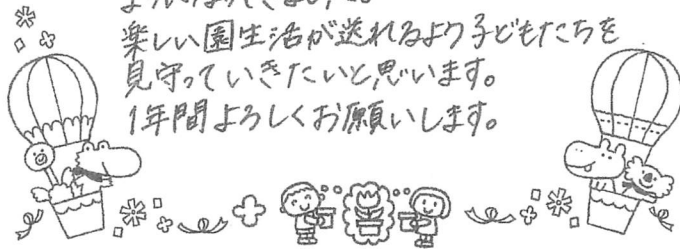 楽しい園生活が送れるよう子どもたちを
見守っていきたいと思います。
1年間よろしくお願いします。